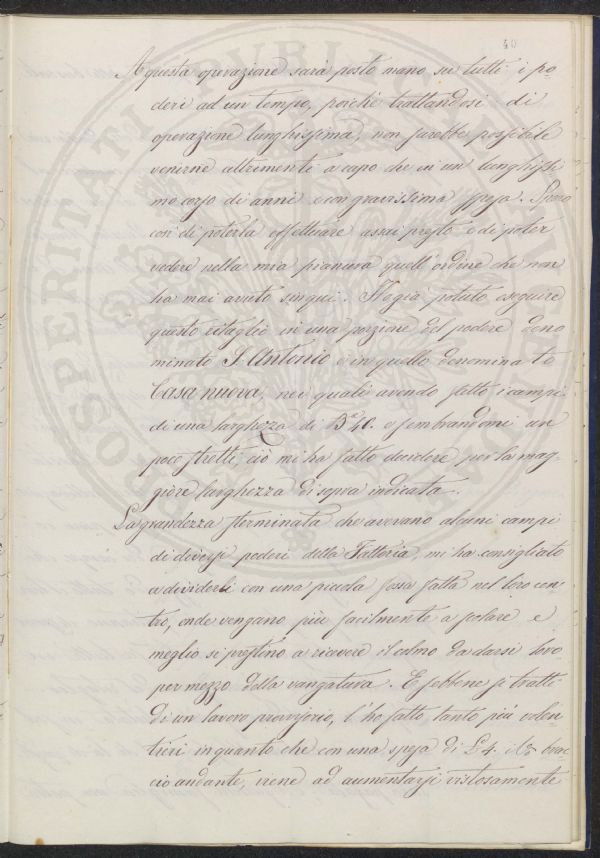 40
A questa operazione sarà posto mano su tutti i po-
deri ad un tempo, poichè trattandosi di
operazione lunghissima, non sarebbe possibile
venirne altrimenti a capo che in un lunghissi
mo corso di anni e con gravissima spesa. Spero
così di poterla effettuare assai presto e di poter
vedere nella mia pianura quell'ordine che non
ha mai avuto sinqui. Ho già potuto eseguire
questo ritaglio in una porzione del podere deno
minato S. Antonio e in quello denominato
Casa nuova, nei quali avendo fatto i campi
di una larghezza di B.a 40. e sembrandomi un
poco stretti, ciò mi ha fatto decidere per la mag-
giore larghezza di sopra indicata.
La grandezza sterminata che avevano alcuni campi
di diversi poderi della Fattoria, mi ha consigliato
a dividerli con una piccola fossa fatta nel loro cen-
tro, onde vengano più facilmente a scolare e
meglio si prestino a ricevere il colmo da darsi loro
per mezzo della vangatura. E sebbene si tratti
di un lavoro provvisorio, l'ho fatto tanto più volen-
tieri in quanto che con una spesa di £ 4. il % brac-
cio andante, viene ad aumentarsi vistosamente